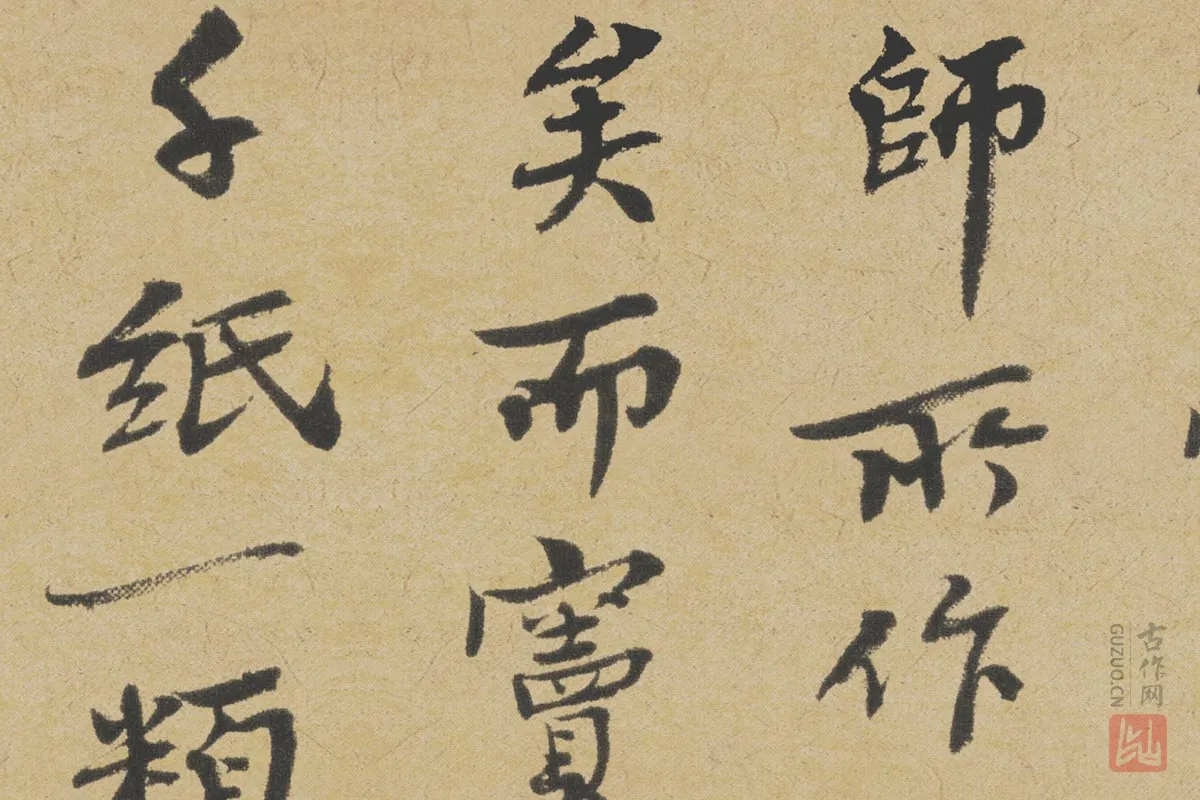 師所作
矣而竇
千紙一類
古作网
GUZUO.CN